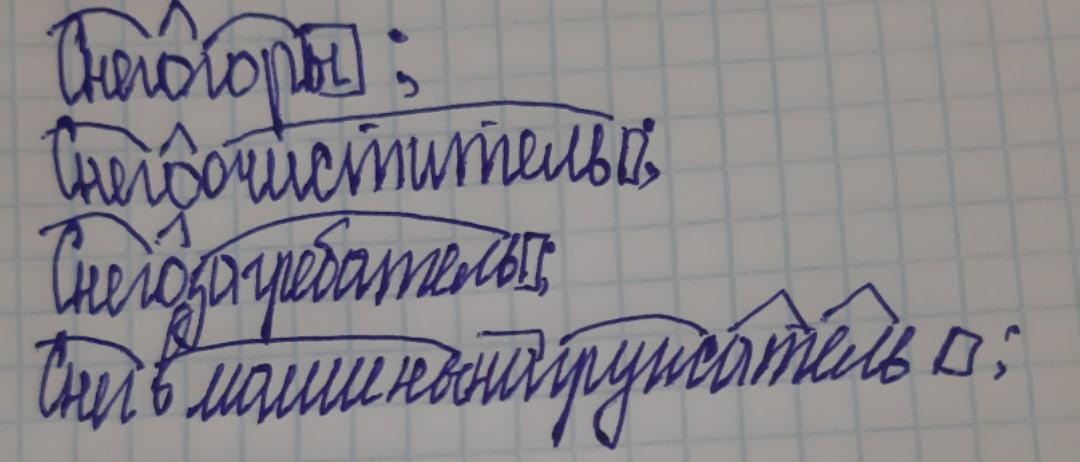 Снегогоры;
Снегоочиститель;
Снегозагребатель;
Снегвмашинынагружатель;